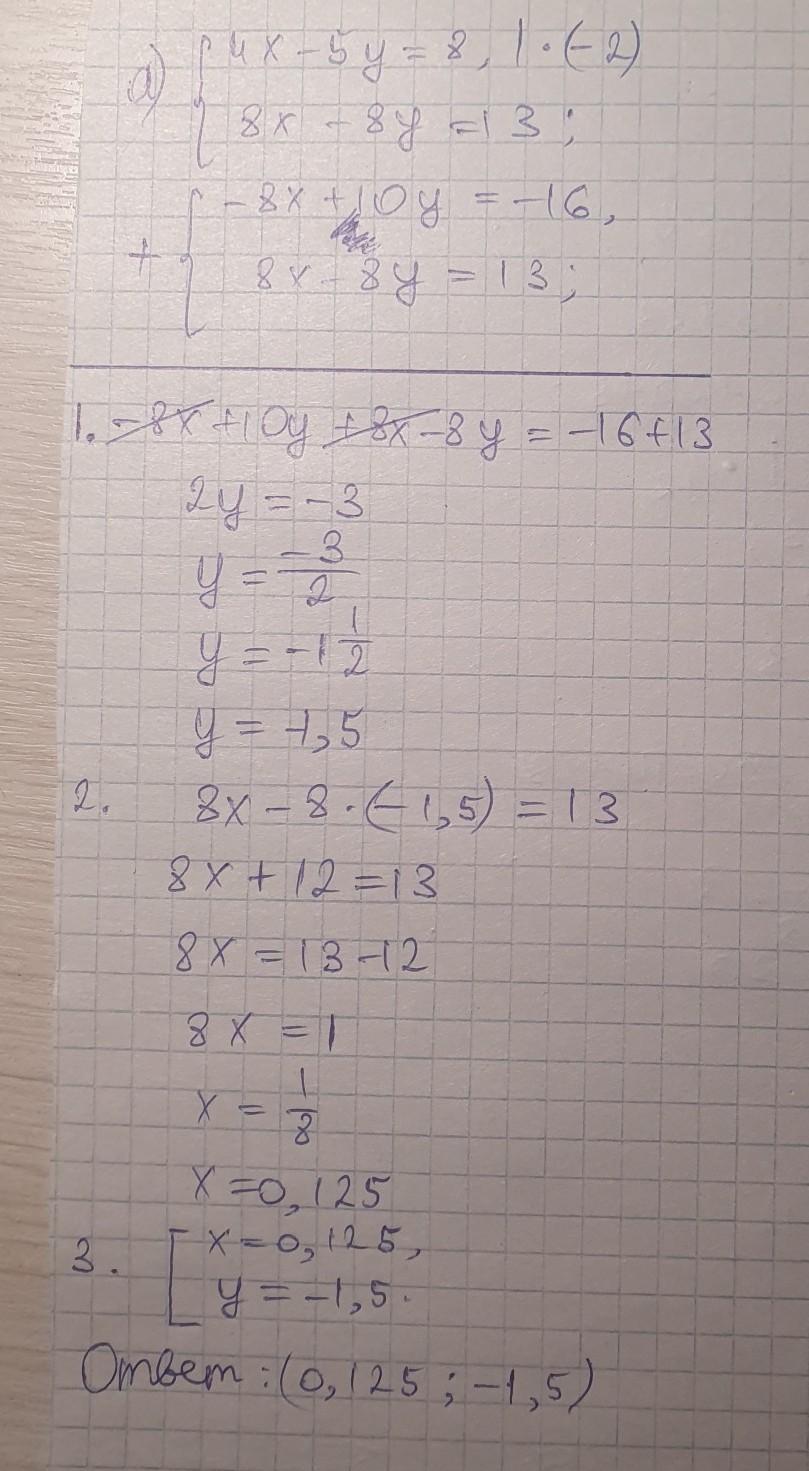 а) { 4x - 5y = 8, | · (-2)
8x - 8y = 13;
+ { -8x + 10y = -16,
8x - 8y = 13;
1. -8x + 10y + 8x - 8y = -16 + 13
2y = -3
y = -3/2
y = -1 1/2
y = -1,5
2. 8x - 8 · (-1,5) = 13
8x + 12 = 13
8x = 13 - 12
8x = 1
x = 1/8
x = 0,125
3. [ x = 0,125,
y = -1,5.
Ответ: (0,125 ; -1,5)